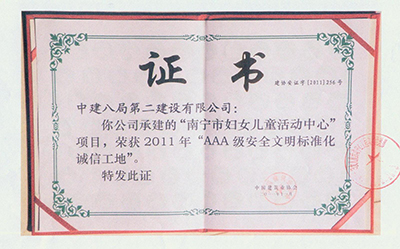 证 书
建协安证字[2011]256号
中建八局第二建设有限公司：
你公司承建的“南宁市妇女儿童活动中心”
项目，荣获2011年“AAA级安全文明标准化
诚信工地”。
特发此证